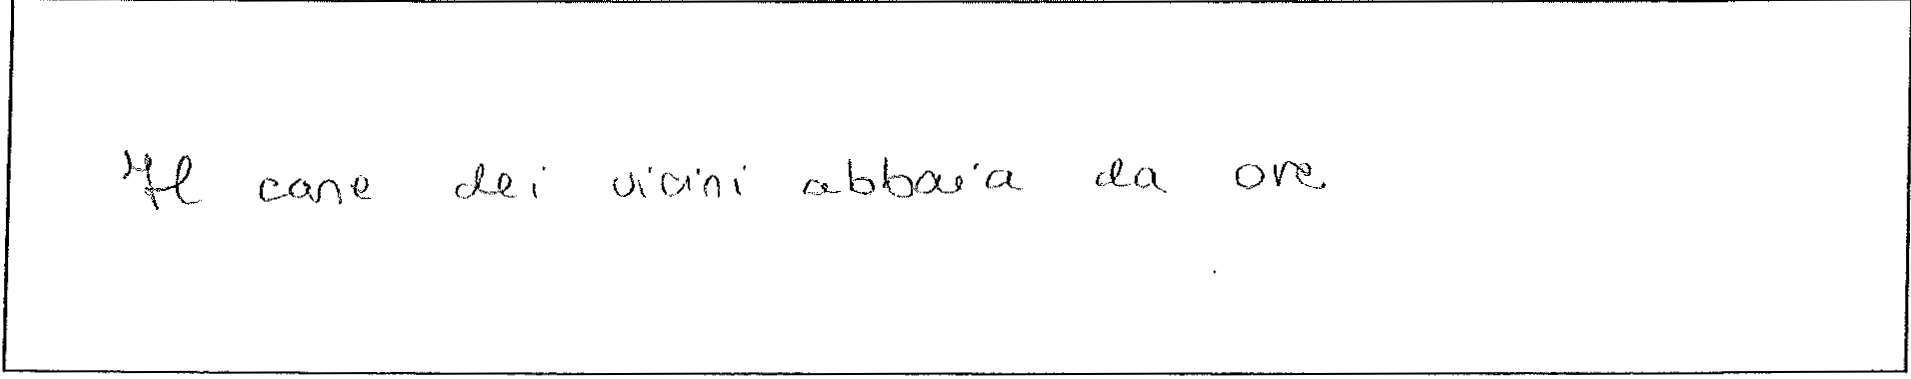 Il cane dei vicini abbaia da ore